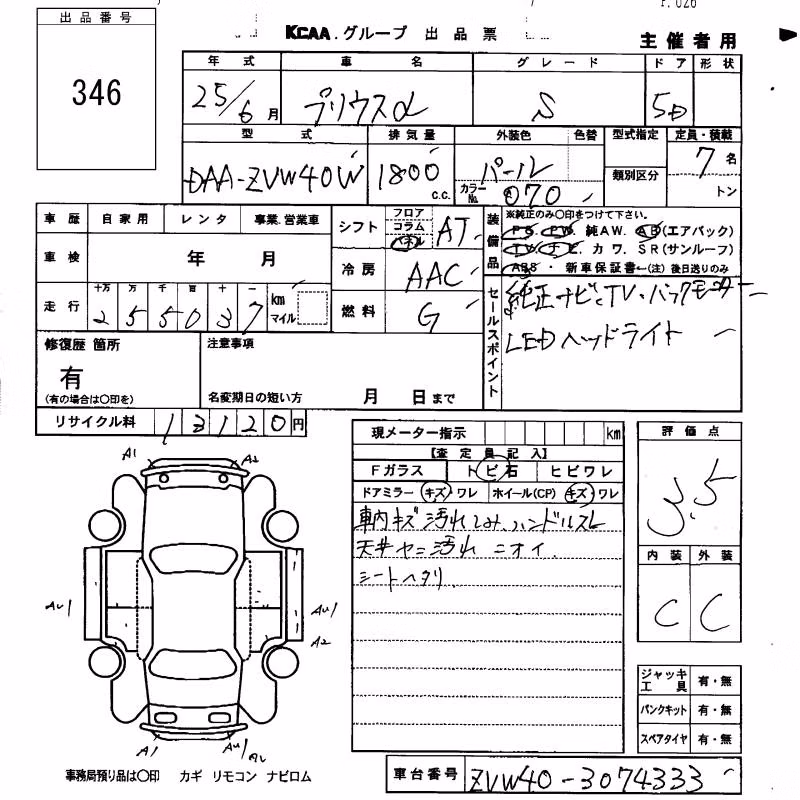 出品番号
346
KCAA.グループ 出品票
主催者用
年式 車名 グレード ドア 形状
25/6月 プリウスα S 5D
型式 排気量 外装色 色替 型式指定 定員・積載
DAA-ZVW40W 1800 c.c. パール カラーNo. 070 類別区分 7名 トン
車歴 自家用 レンタ 事業.営業車
車検 年 月
走行 十万 万 千 百 十 一 km マイル
255037
シフト フロア コラム パネル AT
冷房 AAC
燃料 G
装備品
※純正のみ○印をつけて下さい。
PS. PW. 純AW. AB(エアバック)
TV. ナビ. カワ. SR(サンルーフ)
ABS・新車保証書←(注) 後日送りのみ
セールスポイント
純正ナビ、TV・バックモニター
LEDヘッドライト
修復歴 箇所
有
(有の場合は○印を)
注意事項
名変期日の短い方 月 日まで
リサイクル料 13120円
現メーター指示 km
【査定員記入】
Fガラス トビ石 ヒビワレ
ドアミラー キズ ワレ ホイール(CP) キズ ワレ
車内キズ汚れシミ、ハンドルスレ
天井ヤニ汚れ ニオイ
シートヘタリ
評価点
3.5
内装 外装
C C
ジャッキ工具 有・無
パンクキット 有・無
スペアタイヤ 有・無
A1 A2
AU1 AU1
A2
A1 AU1
事務局預り品は○印 カギ リモコン ナビロム
車台番号 ZVW40-3074333